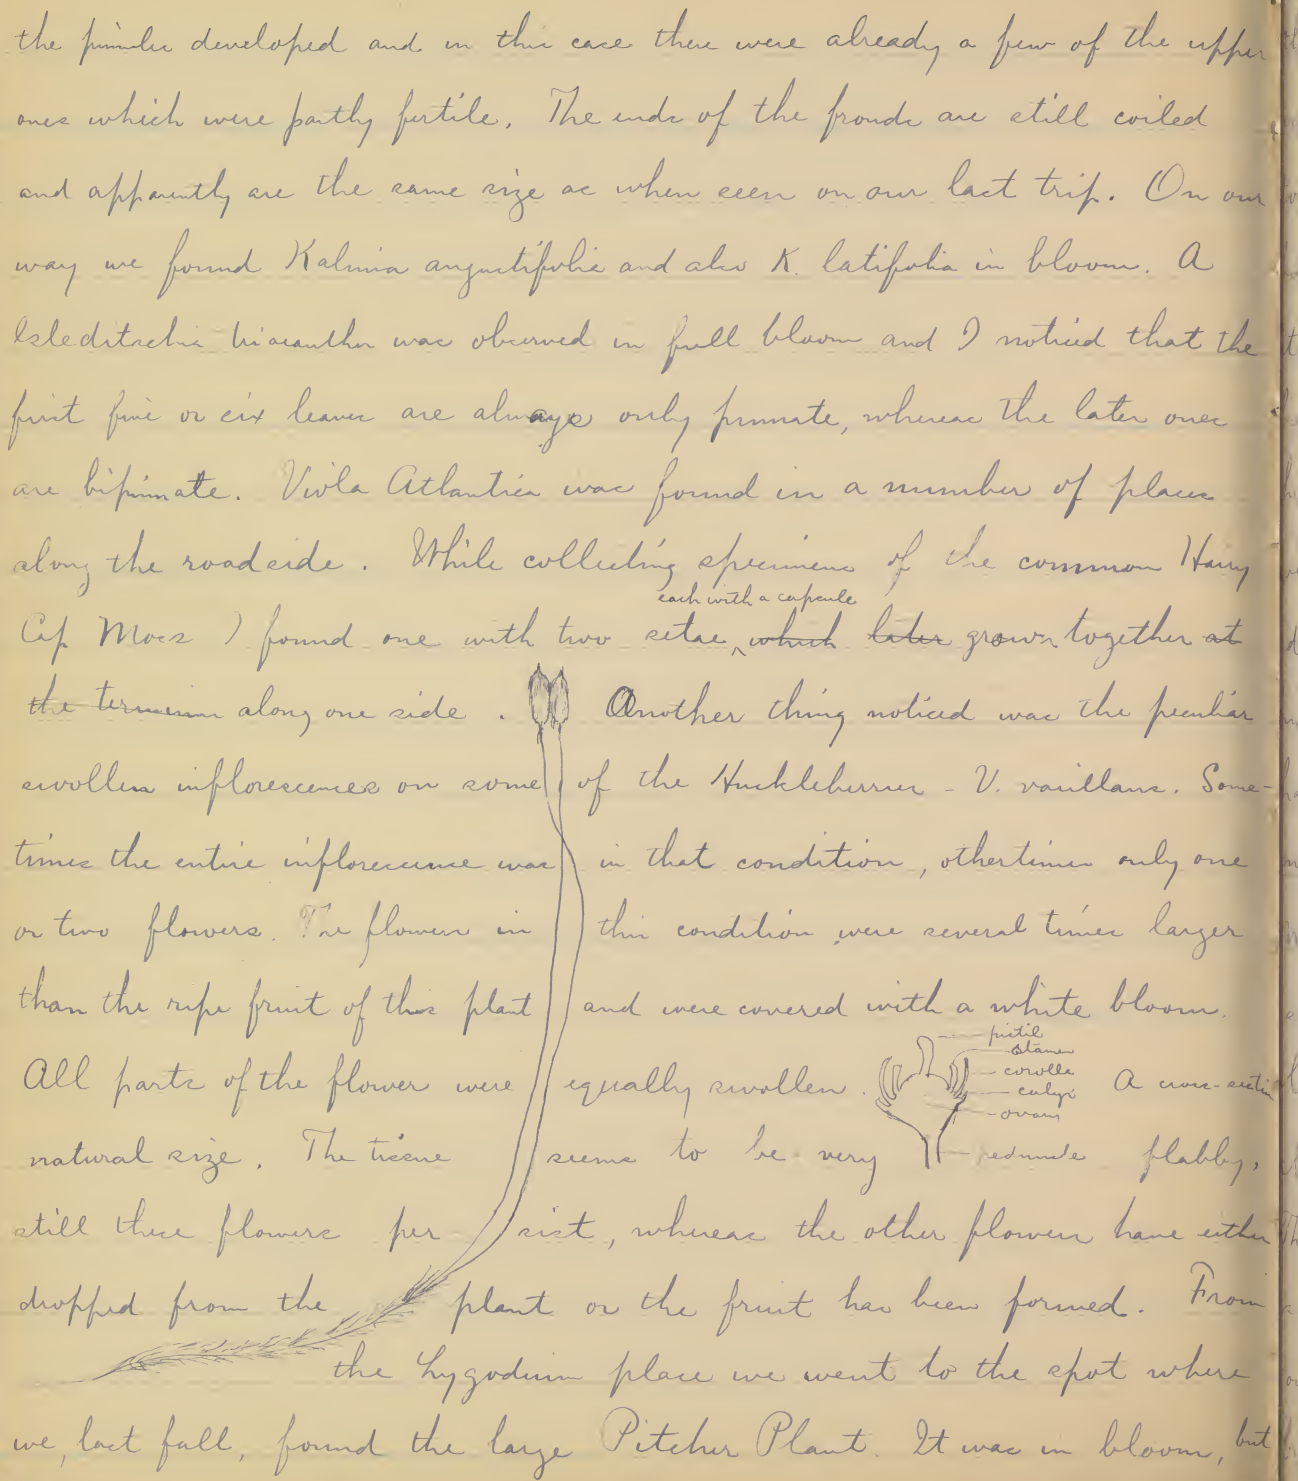 the pinnules developed and in this case there were already a few of the upper
ones which were partly fertile. The ends of the fronds are still coiled
and apparently are the same size as when seen on our last trip. On our
way we found Kalmia angustifolia and also K. latifolia in bloom. A
Gleditschia triacanthos was observed in full bloom and I noticed that the
first five or six leaves are always only pinnate, whereas the later ones
are bipinnate. Viola Atlantica was found in a number of places
along the roadside. While collecting specimens of the common Hairy
each with a capsule
Cap Moss I found one with two setae, which later grown together at
the terminus along one side. Another thing noticed was the peculiar
swollen inflorescences on some of the Huckleberries - V. vacillans. Some-
times the entire inflorescence was in that condition, othertimes only one
or two flowers. The flowers in this condition were several times larger
than the ripe fruit of this plant and were covered with a white bloom.
pistil
stamen
corolla
calyx
ovary
All parts of the flower were equally swollen. A cross-section
natural size. The tissue seems to be very peduncle flabby,
still these flowers persist, whereas the other flowers have either
dropped from the plant or the fruit has been formed. From
the Lygodium place we went to the spot where
we, last fall, found the large Pitcher Plant. It was in bloom, but